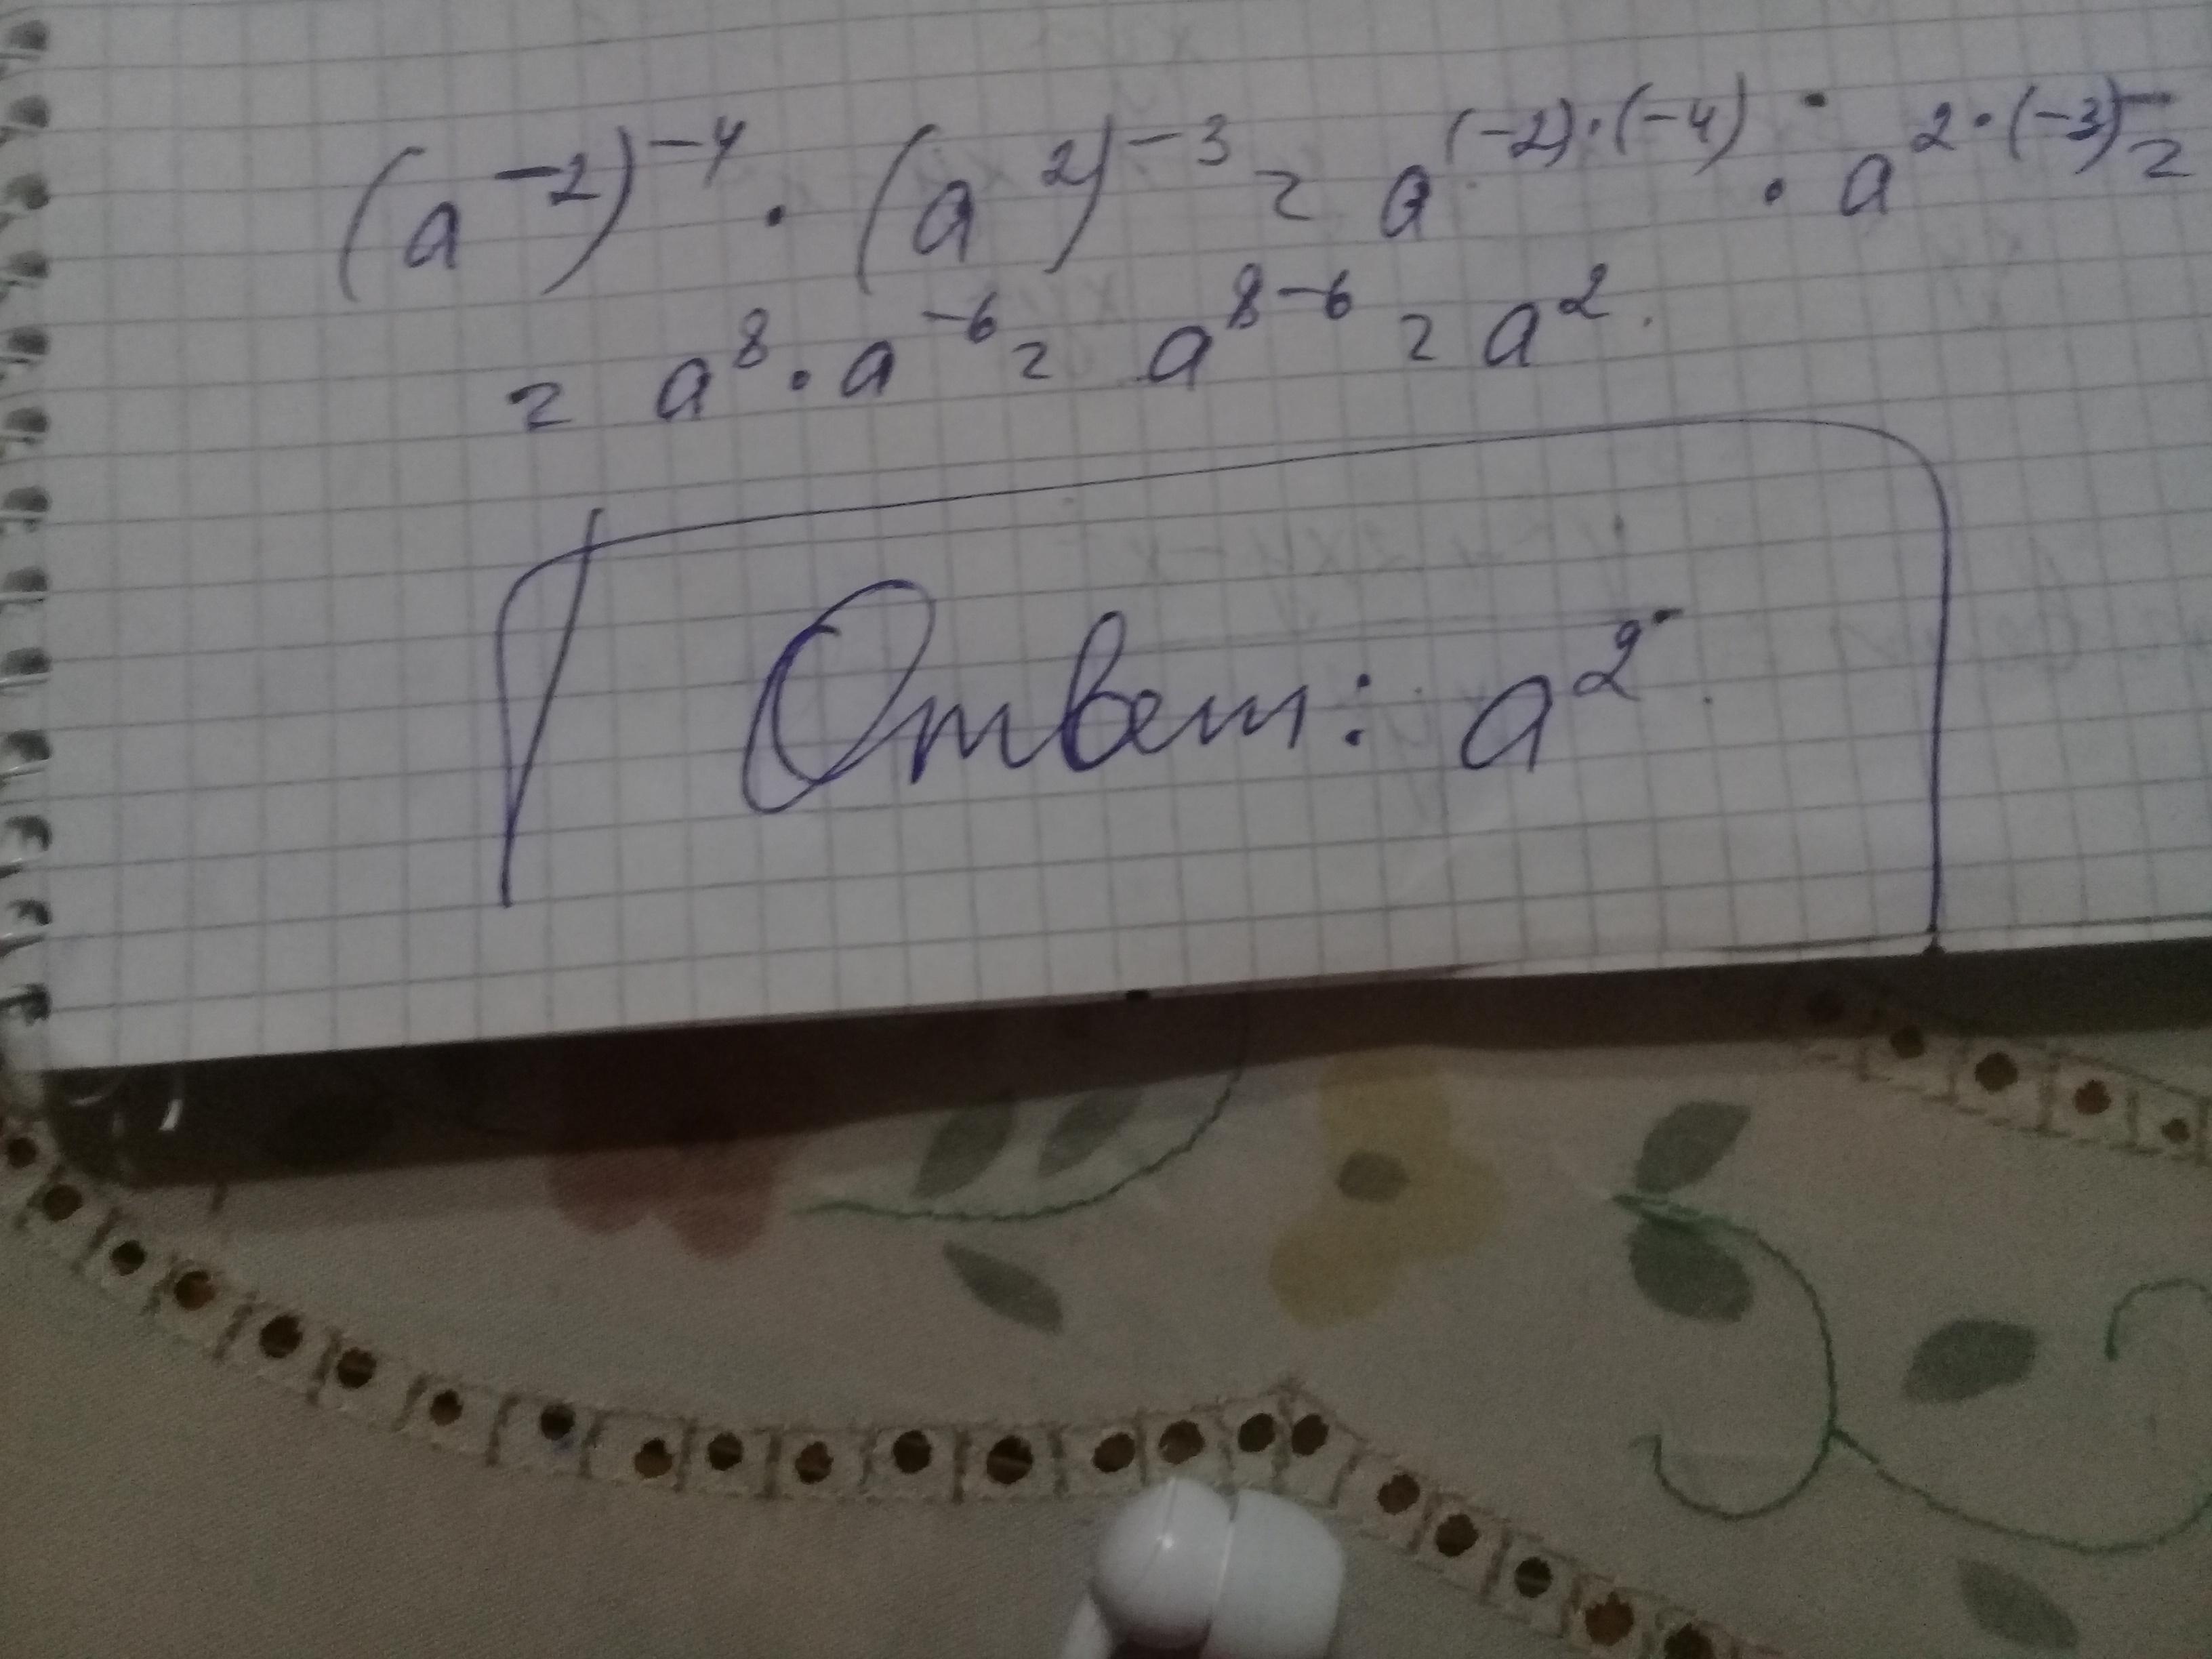 (a⁻²)⁻⁴ · (a²)⁻³ = a⁽⁻²⁾·⁽⁻⁴⁾ · a²·⁽⁻³⁾ =
= a⁸ · a⁻⁶ = a⁸⁻⁶ = a².
Ответ: a².